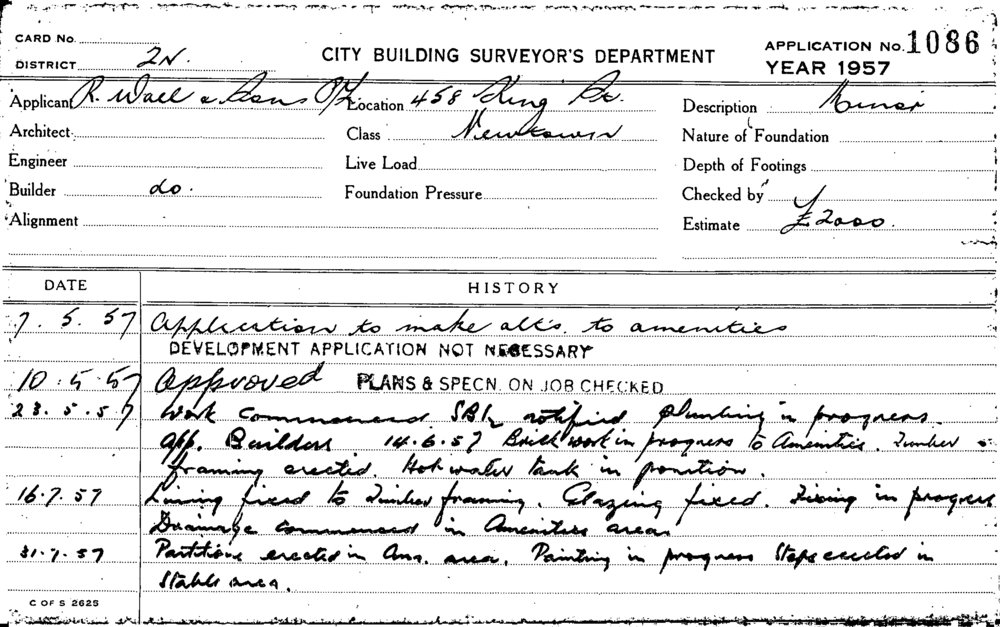 CARD No.
DISTRICT 2N.
CITY BUILDING SURVEYOR'S DEPARTMENT
APPLICATION No. 1086
YEAR 1957
Applicant R. Wall & Sons P/L Location 458 King St. Description Minor
Architect Class Newtown Nature of Foundation
Engineer Live Load Depth of Footings
Builder do. Foundation Pressure Checked by
Alignment Estimate £2000.
DATE HISTORY
7.5.57 Application to make alt's. to amenities
DEVELOPMENT APPLICATION NOT NECESSARY
10.5.57 Approved PLANS & SPECN. ON JOB CHECKED
28.5.57 Work commenced notified plumbing in progress.
app. Builders 14.6.57 Brickwork in progress to Amenities. Timber
framing erected. Hot water tank in position.
16.7.57 Lining fixed to Timber framing. Glazing fixed. Fixing in progress
Drainage commenced in Amenities area
31.7.57 Partitions erected in Ams. area. Painting in progress Steps erected in
Stable area.
C OF S 2625